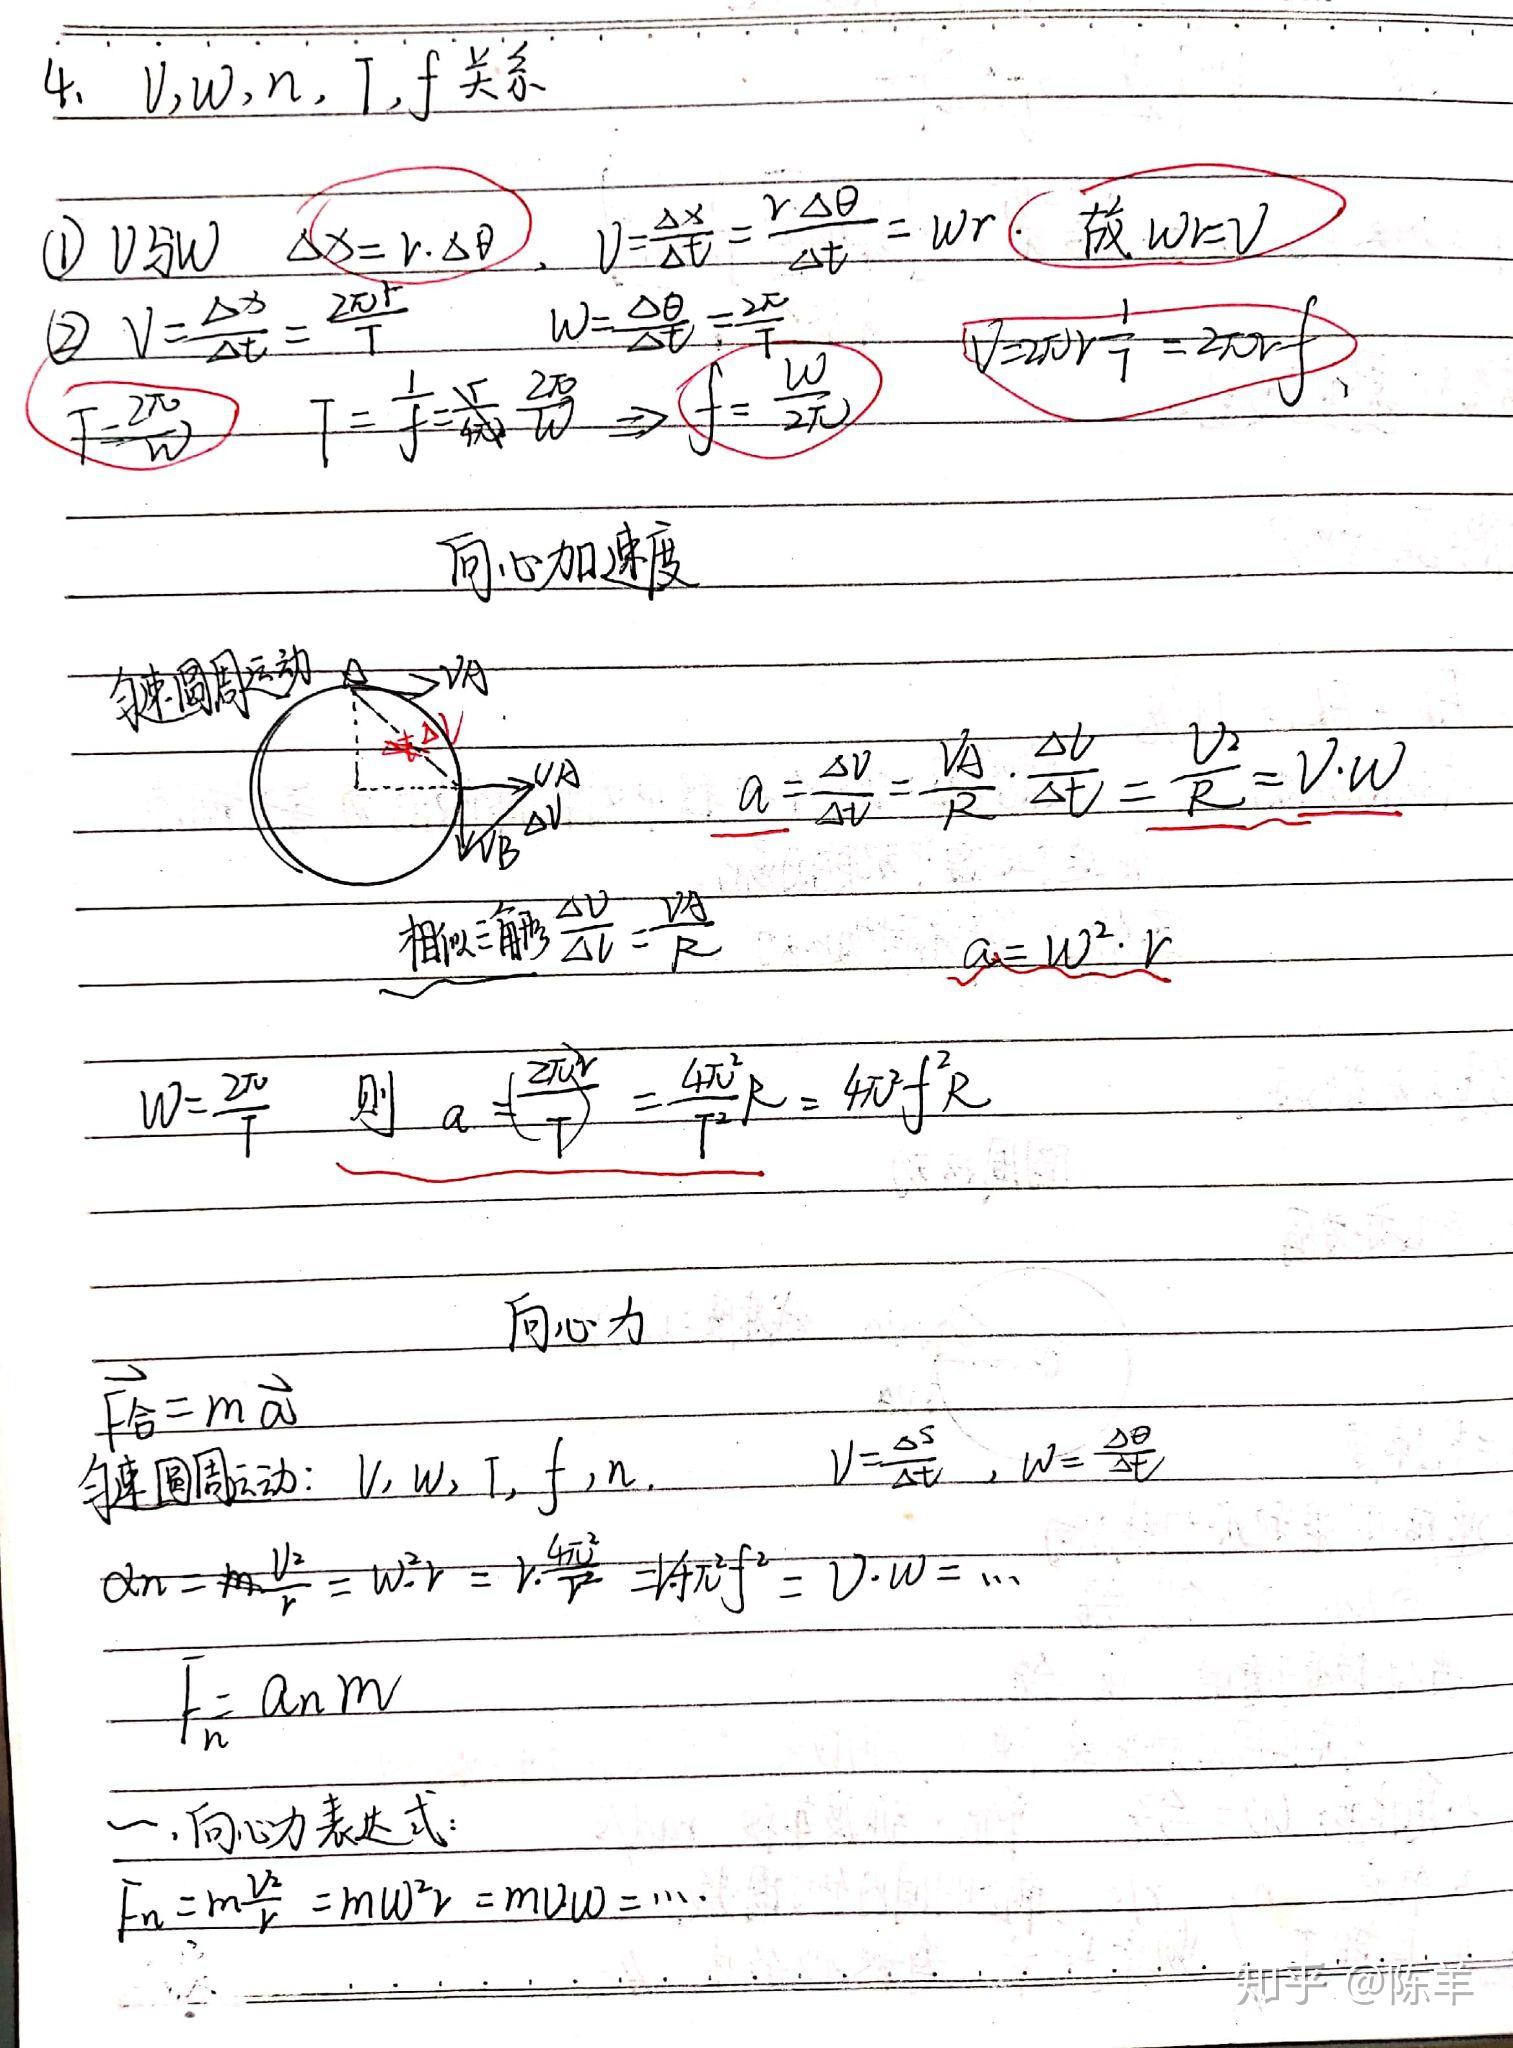 4. V, W, n, T, f 关系
① V与W Δx=r·Δθ, V=Δx/Δt=r·Δθ/Δt=Wr. 故 Wr=V
② V=Δx/Δt=2πr/T W=Δθ/Δt=2π/T V=2πr 1/T=2πrf、
T=2π/W T=1/f=2π/W ⇒ f=W/2π
向心加速度
匀速圆周运动 A VA
Δl ΔV
VA
ΔV
VB
a=ΔV/Δt=VA/R·Δl/Δt=V²/R=V·W
相似三角形 ΔV/Δl=VA/R a=W²·r
W=2π/T 则 a=(2π/T)²r=4π²/T²R=4π²f²R
向心力
F合=ma
匀速圆周运动: V, W, T, f, n. V=ΔS/Δt, W=Δθ/Δt
an=V²/r=W²·r=r·4π²/T²=r4π²f²=V·W=…
Fn=an m
一、向心力表达式:
Fn=mV²/r=mW²r=mVW=….
知乎 @陈羊